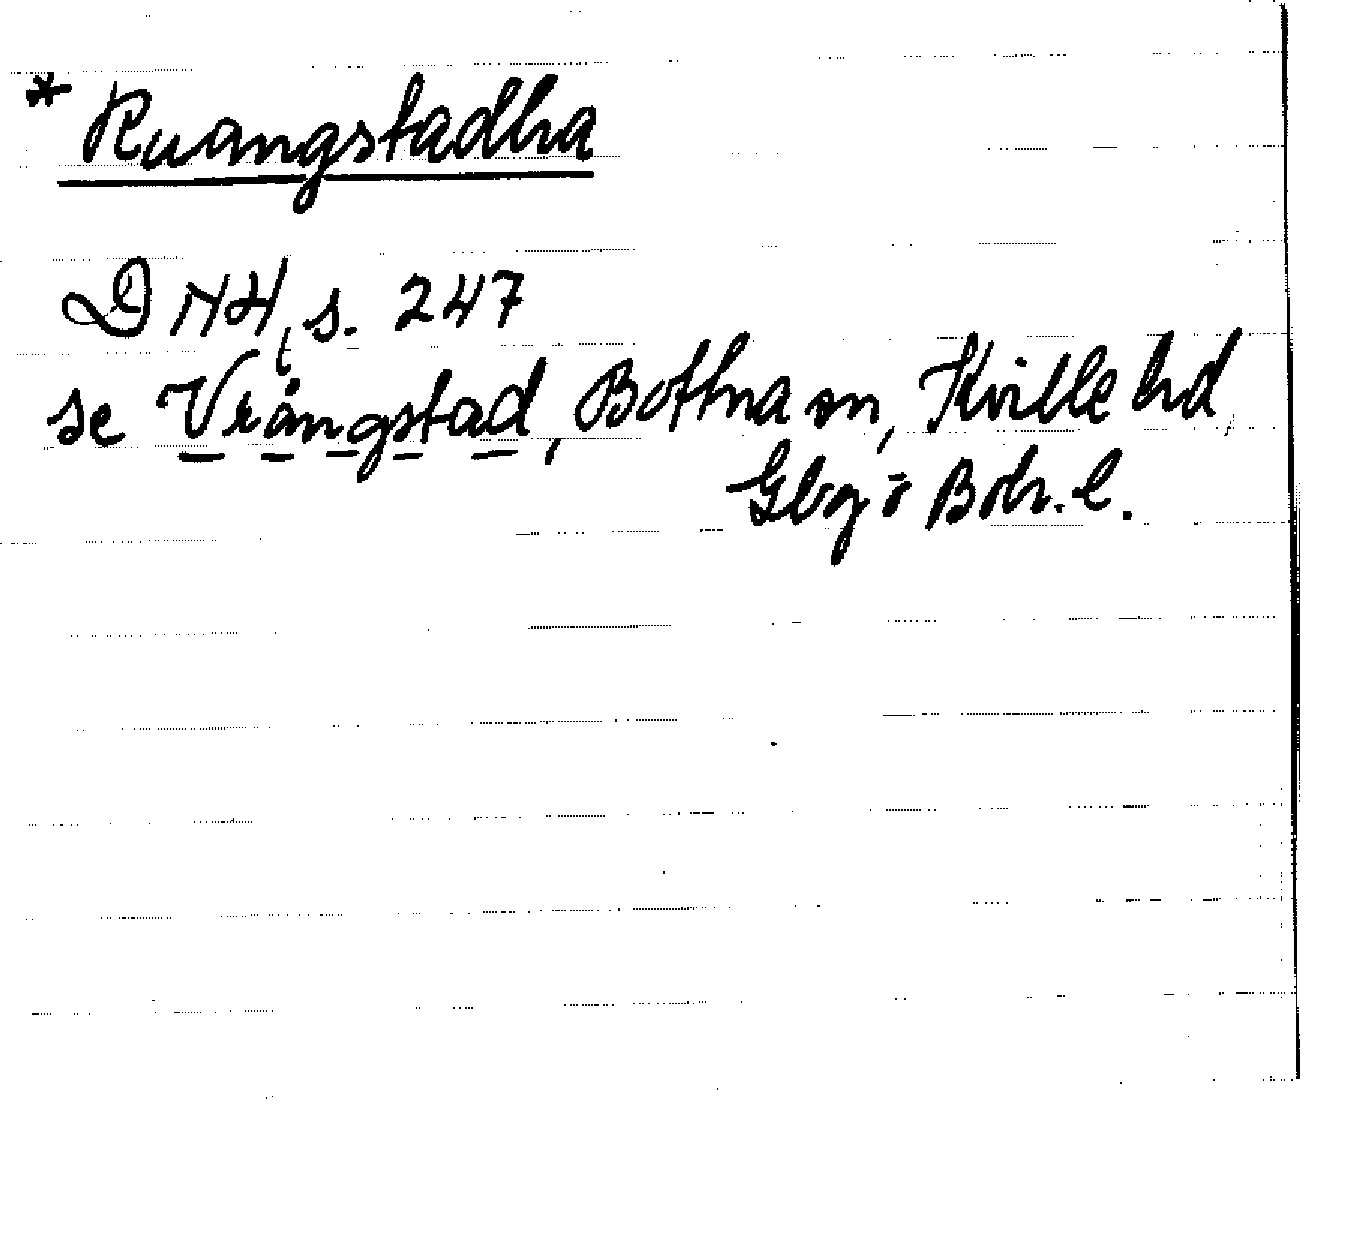 * Ruangstadha
DNH, s. 247
se Vrångstad, Bottna sn, Kville hd,
Gbg o Boh. l.